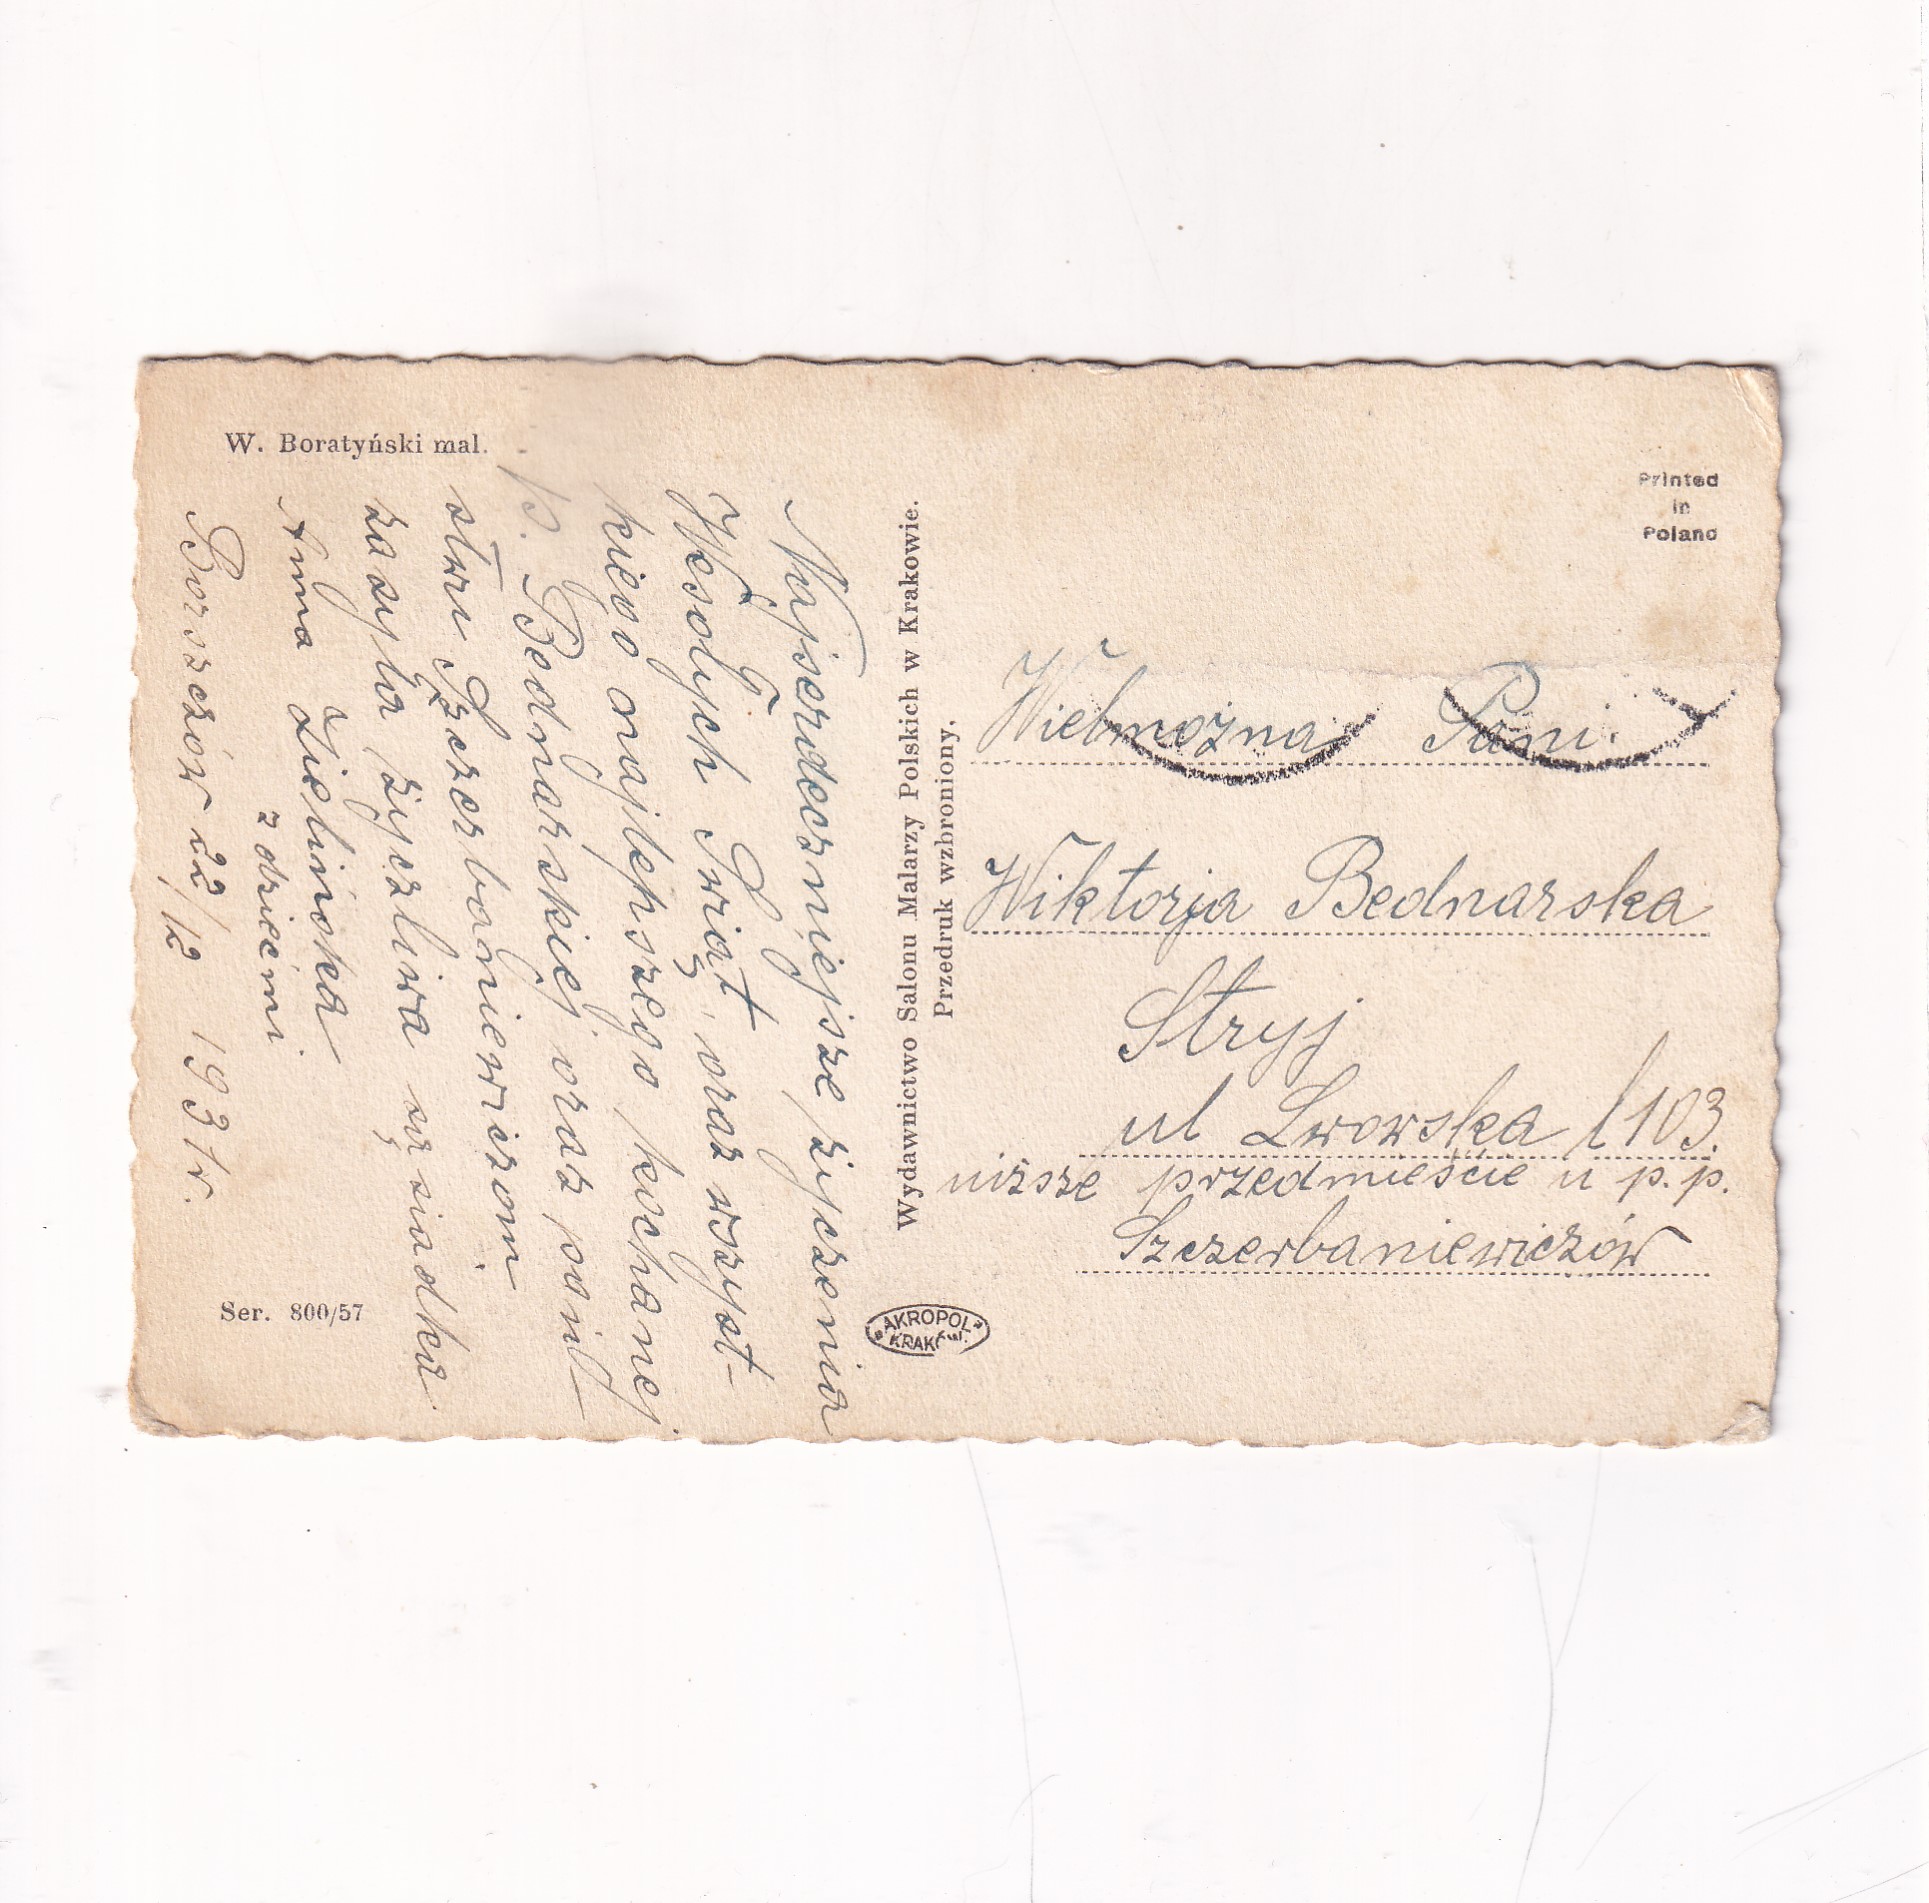 W. Boratyński mal.
Najserdeczniejsze życzenia
Wesołych Świąt, oraz wszyst-
kiego najlepszego kochanej
p. Bednarskiej oraz pań-
stwu Szczerbaniewiczom
zasyła życzliwa sąsiadka
Anna Zielińska
z dziećmi
Borszczów 22/12 1937r.
Ser. 800/57
Wydawnictwo Salonu Malarzy Polskich w Krakowie.
Przedruk wzbroniony.
"AKROPOL"
KRAKÓW.
Printed
in
Poland
Wielmożna Pani.
Wiktorja Bednarska
Stryj
ul Lwowska l 103.
niższe przedmieście u p. p.
Szczerbaniewiczów